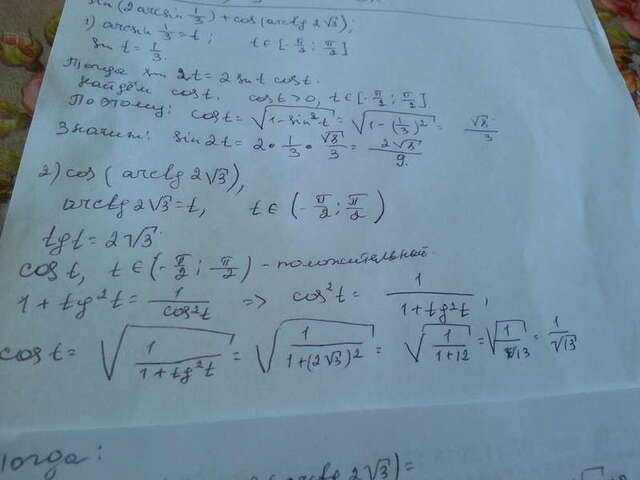 sin(2arcsin 1/3) + cos(arctg 2√3);
1) arcsin 1/3 = t; t∈[-π/2; π/2]
sin t = 1/3.
Тогда sin 2t = 2 sin t cos t.
найдём cos t. cos t > 0, t∈[-π/2; π/2]
Поэтому: cos t = √(1-sin²t) = √(1-(1/3)²) = √8/3
Значит: sin 2t = 2 · 1/3 · √8/3 = 2√8/9.
2) cos(arctg 2√3),
arctg 2√3 = t, t∈(-π/2; π/2)
tg t = 2√3.
cos t, t∈(-π/2; π/2) - положительный.
1 + tg²t = 1/cos²t => cos²t = 1/(1+tg²t);
cos t = √(1/(1+tg²t)) = √(1/(1+(2√3)²)) = √(1/(1+12)) = √(1/13) = 1/√13
Тогда:
2√3) =